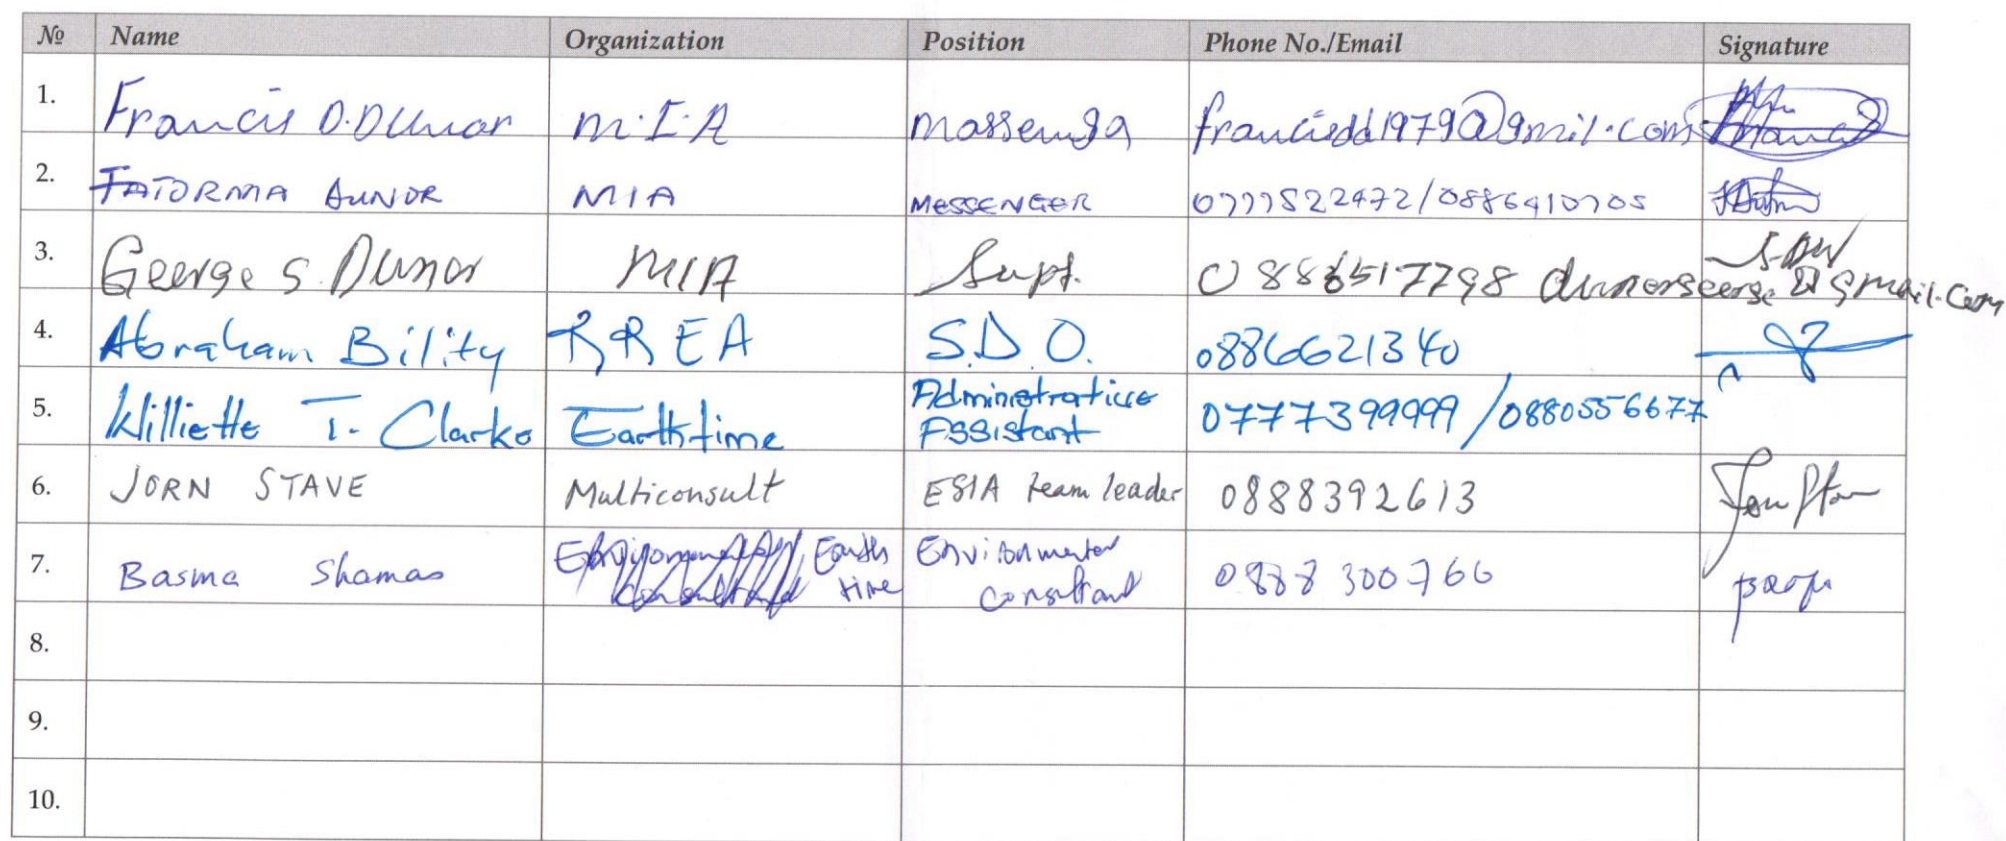 № Name Organization Position Phone No./Email Signature
1. Francis D. Dunor M.I.A massenga francisdd1979@gmil.com
2. FATORMA DUNOR MIA MESSENGER 0777522472/0886410705
3. George S. Dunor MIA Supt. 0886517798 dunorgeorge@gmail.com
4. Abraham Bility RREA S.D.O. 0886621340
5. Williette T. Clarke Earthtime Administrative Assistant 0777399999/0880556677
6. JORN STAVE Multiconsult ESIA team leader 0888392613
7. Basma Shamas Earth time Environmental consultant 0888300766
8.
9.
10.